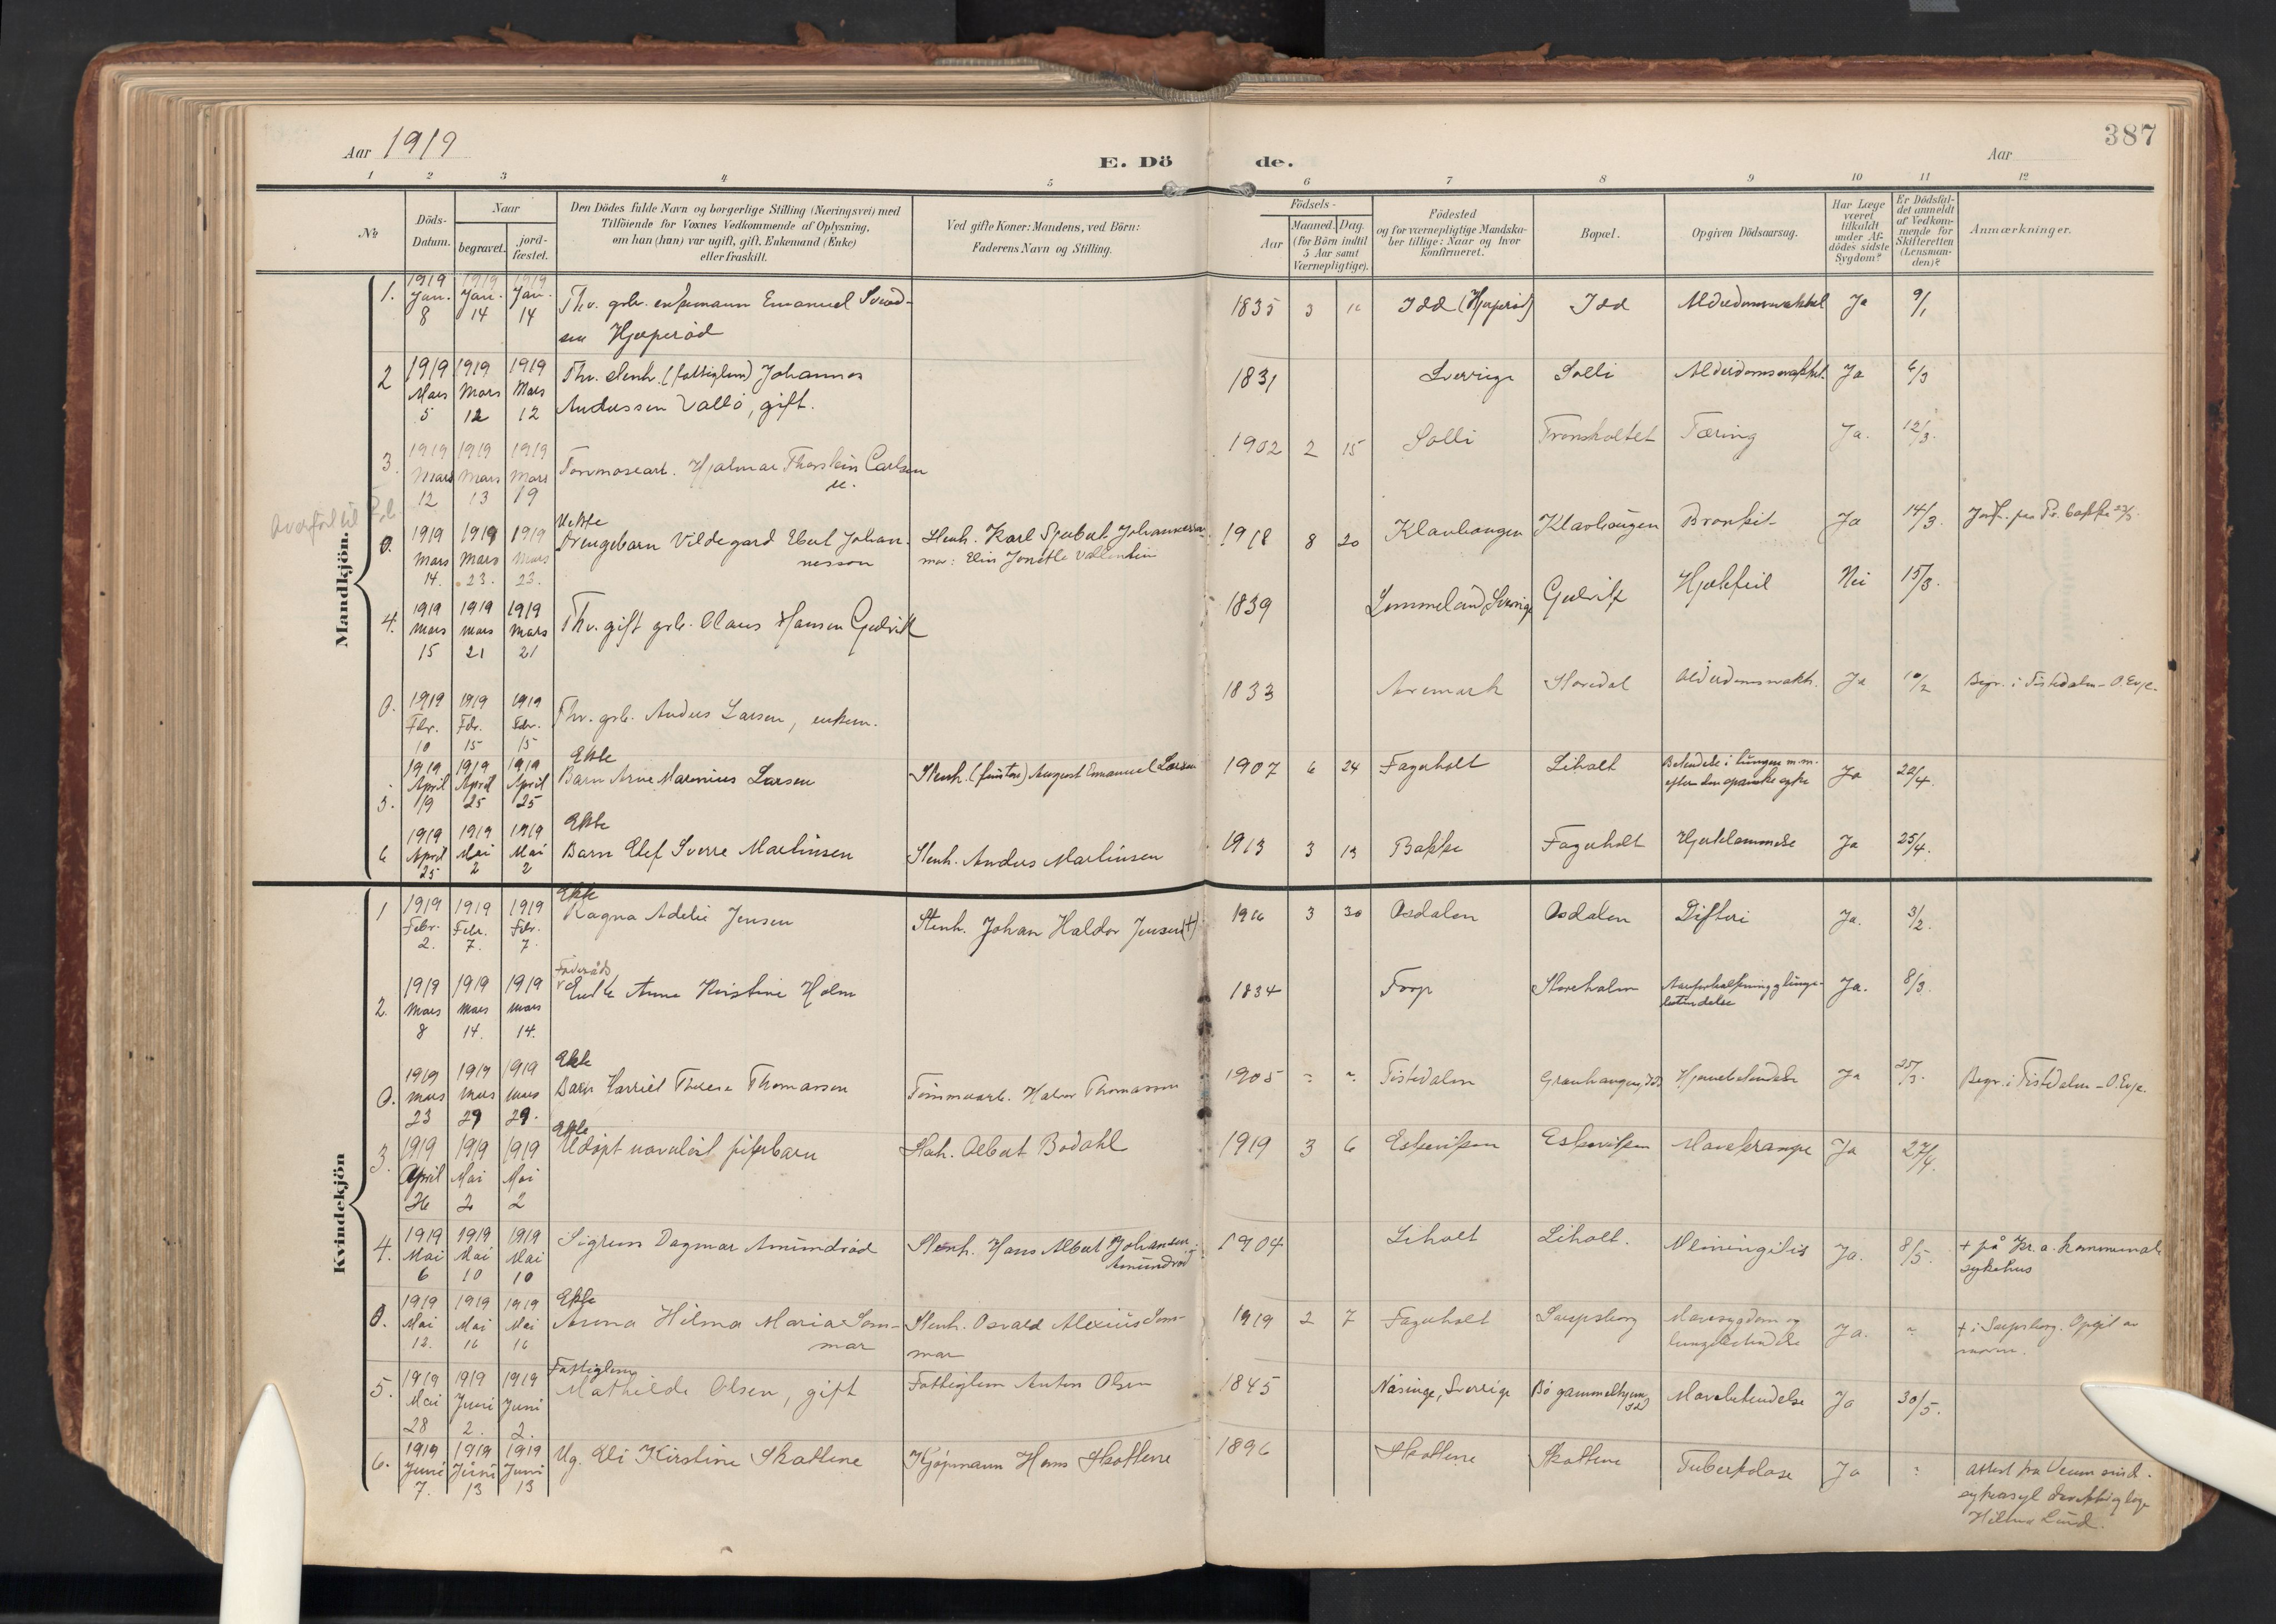 387
Aar 1919
E. Dö de.
Aar
1 2 3 4 5 6 7 8 9 10 11 12
No
Döds-Datum.
Naar
begravet.
jord-fæstet.
Den Dödes fulde Navn og borgerlige Stilling (Næringsvei) med
Tilföiende for Voxnes Vedkommende af Oplysning,
om han (hun) var ugift, gift, Enkemand (Enke)
eller fraskilt.
Ved gifte Koner: Mandens, ved Börn:
Faderens Navn og Stilling.
Födsels-
Aar
Maaned. Dag.
(for Börn indtil
5 Aar samt
Værnepligtige).
Födested
og for værnepligtige Mandska-
ber tillige: Naar og hvor
konfirmeret.
Bopæl.
Opgiven Dödsaarsag.
Har Læge
været
tilkaldt
under Af-
dödes sidste
Sygdom?
Er Dödsfal-
det anmeldt
af Vedkom-
mende for
Skifteretten
(Lensman-
den)?
Anmærkninger.
Mandkjön.
1. 1919 Jan. 8 1919 Jan. 14 1919 Jan. 14 Fhv. grb. enkemann Emanuel Svend-
sen Hjæperød 1835 3 Idd (Hjæperød) Idd Alderdomssvakhet Ja 9/1
2 1919 Mars 5 1919 Mars 12 1919 Mars 12 Fhv. stenh. (fattiglem) Johannes
Anderssen Vallö, gift. 1831 Sverrige Solli Alderdomssvakhet Ja 6/3
3. 1919 Mars 12 1919 Mars 13 1919 Mars 19 Torvmosearb. Hjalmar Thorstein Carlsen
1902 2 15 Solli Tronsholtet Tæring Ja. 12/3.
0. 1919 Mars 14. 1919 Mars 23. 1919 Mars 23. Uekte
Drengebarn Vildegard Ebert Johan-
nesson Stenh. Karl Johannesson
mor: Elin Vallentin 1918 8 20 Klavhaugen Klavhaugen Bronkit Ja 14/3.
4. 1919 Mars 15 1919 Mars 21 1919 Mars 21 Fhv. gift grb. Claus Hansen Gjedvik
1839 Lommeland, Sverrige Hjertefeil Nei 15/3.
0. 1919 Febr. 10 1919 Febr. 15 1919 Febr. 15 Fhv. grb. Anders Larsen, enkem.
1833 Aremark Storedal Alderdomssvakh. Ja 10/2 Begr. i Tistedalen - O. Evje.
5. 1919 April 19 1919 April 25 1919 April 25 Ekte
Barn Arne Marenius Larsen Stenh. August Emanuel Larsen 1907 6 24 Fagerholt Liholt Betendelse i lungen m.m.
efter den spanske syke Ja 22/4.
6 1919 April 25 1919 Mai 2 1919 Mai 2 Ekte
Barn Elef Sverre Martinsen Stenh. Anders Martinsen 1913 3 13 Bakke Fagerholt Hjertelammelse Ja 25/4.
Kvindekjön
1 1919 Febr. 2. 1919 Febr. 7. 1919 Febr. 7. Ekte
Ragna Adelie Jensen Stenh. Johan Haldor Jensen (+) 1916 3 30 Asdalen Asdalen Difteri Ja. 3/2.
2. 1919 Mars 8 1919 Mars 14. 1919 Mars 14. Føderåds
Enke Anna Kristine Holm 1834 Torp Storeholm Aareforkalkning og lunge-
betendelse Ja. 8/3.
0. 1919 Mars 23 1919 Mars 29 1919 Mars 29. Ekte
Barn Harriet Therese Thomassen Tømmerarb. Halvor Thomassen 1905 Tistedalen Granhaugen, Idd Hjernebetendelse Ja 25/3. Begr. i Tistedalen - O. Evje.
3. 1919 April 26 1919 Mai 2 1919 Mai 2 Ekte
Udøpt navnløst pikebarn Stenh. Albert Bodahl 1919 3 6 Eskeviken Eskeviken Mavekrampe Ja 27/4.
4. 1919 Mai 6 1919 Mai 10 1919 Mai 10 Sigrun Dagmar Amundrød Stenh. Hans Albert Johansen
Amundrød 1904 Liholt Liholt. Meningitis Ja. 8/5. + på Kr.a. kommunale
sykehus
0. 1919 Mai 12. 1919 Mai 16 1919 Mai 16 Ekte
Anna Hilma Maria Som-
mar Stenh. Osvald Alexius Som-
mar 1919 2 7 Fagerholt Sarpsborg Mavesygdom og
lungebetendelse Ja. + i Sarpsborg. Opgit av
moren.
5. 1919 Mai 28 1919 Juni 2. 1919 Juni 2. Fattiglem
Mathilde Olsen, gift Fattiglem Anton Olsen 1845 Näsinge, Sverrige Bö gammelhjem, Idd Mavebetendelse Ja 30/5.
6. 1919 Juni 7. 1919 Juni 13 1919 Juni 13 Ug. Kirstine Skottene Kjøpmann Hans Skottene 1896 Skottene Skottene Tuberkolose Ja Attest fra Veum sind-
sykeasyl
Hilmar Lund.